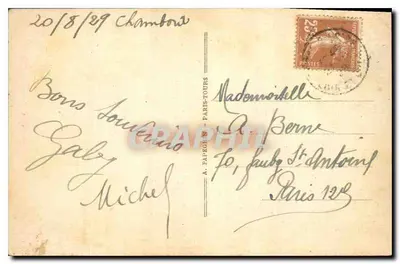 20/8/29 Chambord
Bons souvenirs
Gaby
Michel
A. PAPEGHIN - PARIS-TOURS
Mademoiselle
A. Berne
70, Faubg St Antoine
Paris 12e
25c